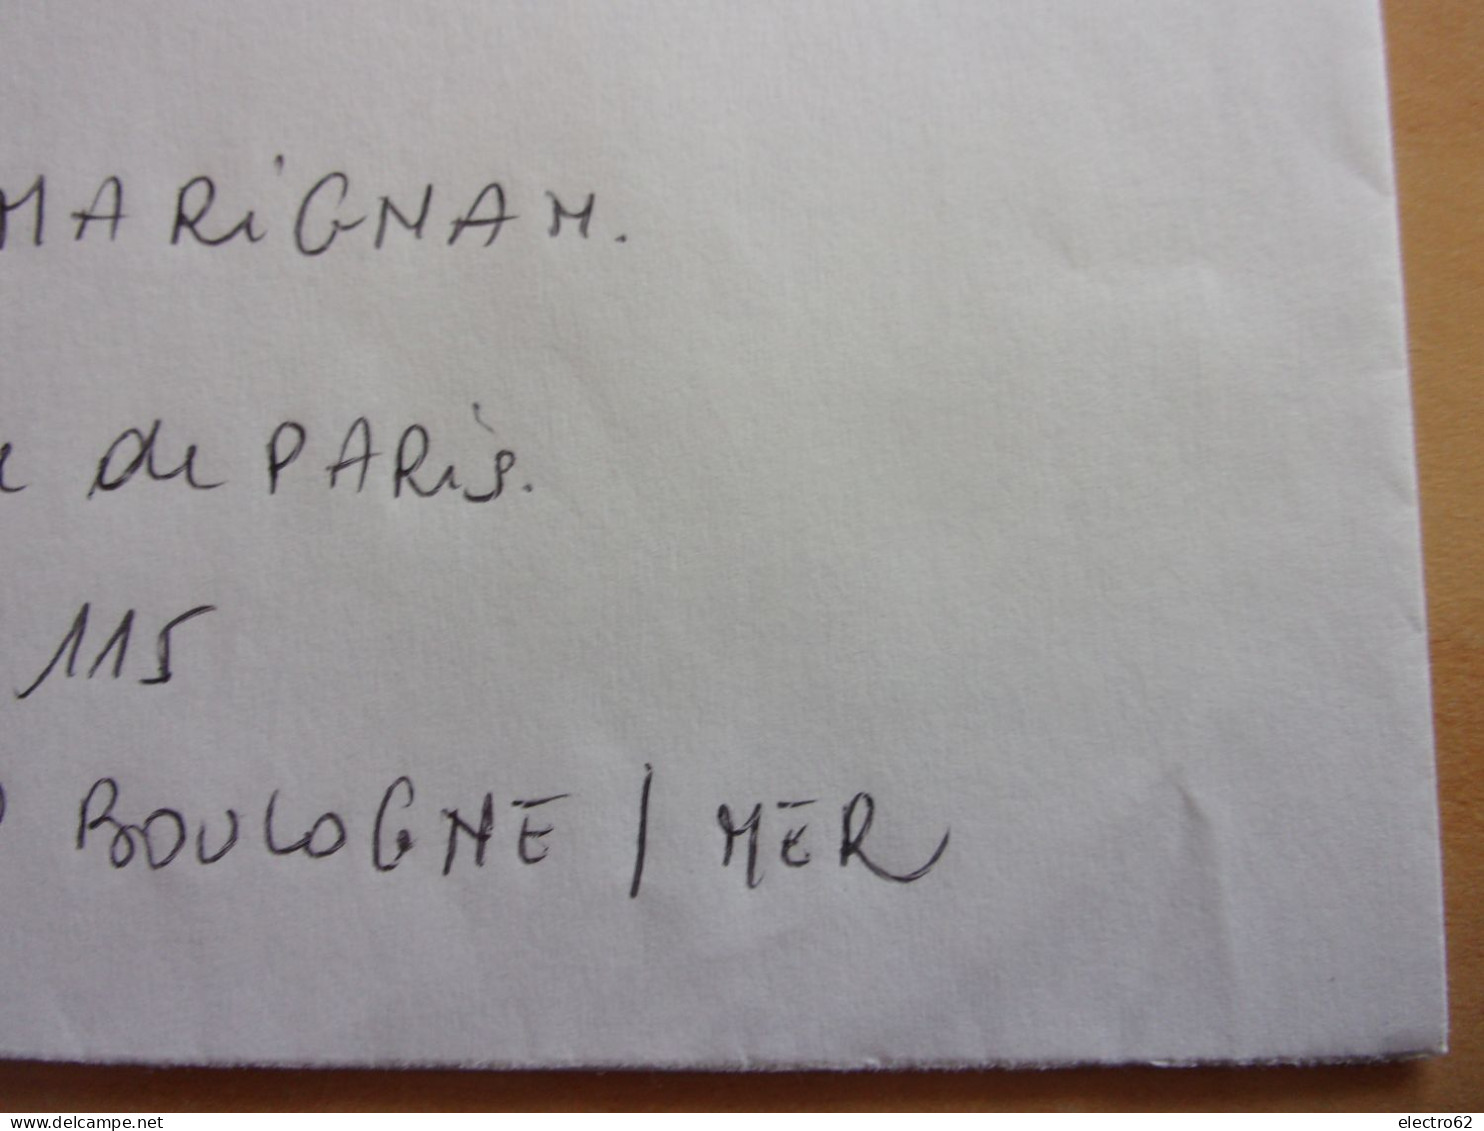 MARIGNAN.
de PARis.
115
BOULOGNE / MER
delcampe.net
electro62